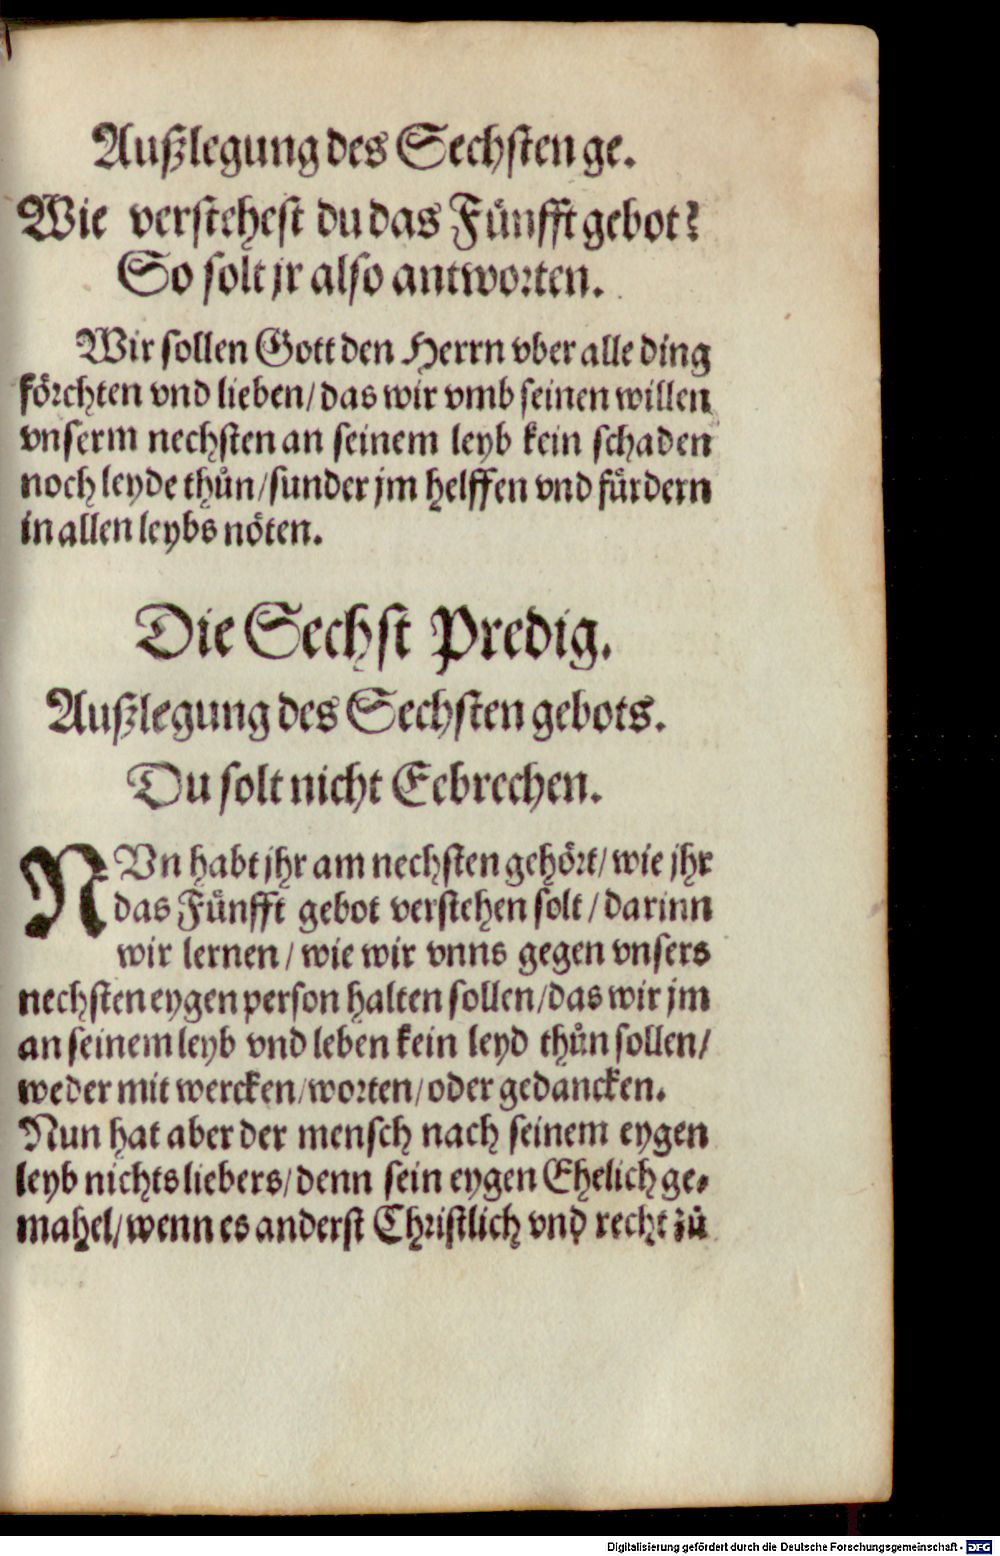 Außlegung des Sechsten ge.
Wie verstehest du das Fünfft gebot?
So solt jr also antworten.
Wir sollen Gott den Herrn vber alle ding
förchten vnd lieben/ das wir vmb seinen willen
vnserm nechsten an seinem leyb kein schaden
noch leyde thůn/ sunder jm helffen vnd fürdern
in allen leybs nöten.
Die Sechst Predig.
Außlegung des Sechsten gebots.
Du solt nicht Eebrechen.
NVn habt jhr am nechsten gehört/ wie jhr
das Fünfft gebot verstehen solt/ darinn
wir lernen/ wie wir vnns gegen vnsers
nechsten eygen person halten sollen/ das wir jm
an seinem leyb vnd leben kein leyd thůn sollen/
weder mit wercken/ worten/ oder gedancken.
Nun hat aber der mensch nach seinem eygen
leyb nichts liebers/ denn sein eygen Ehelich ge-
mahel/ wenn es anderst Christlich vnd recht zů
Digitalisierung gefördert durch die Deutsche Forschungsgemeinschaft - DFG